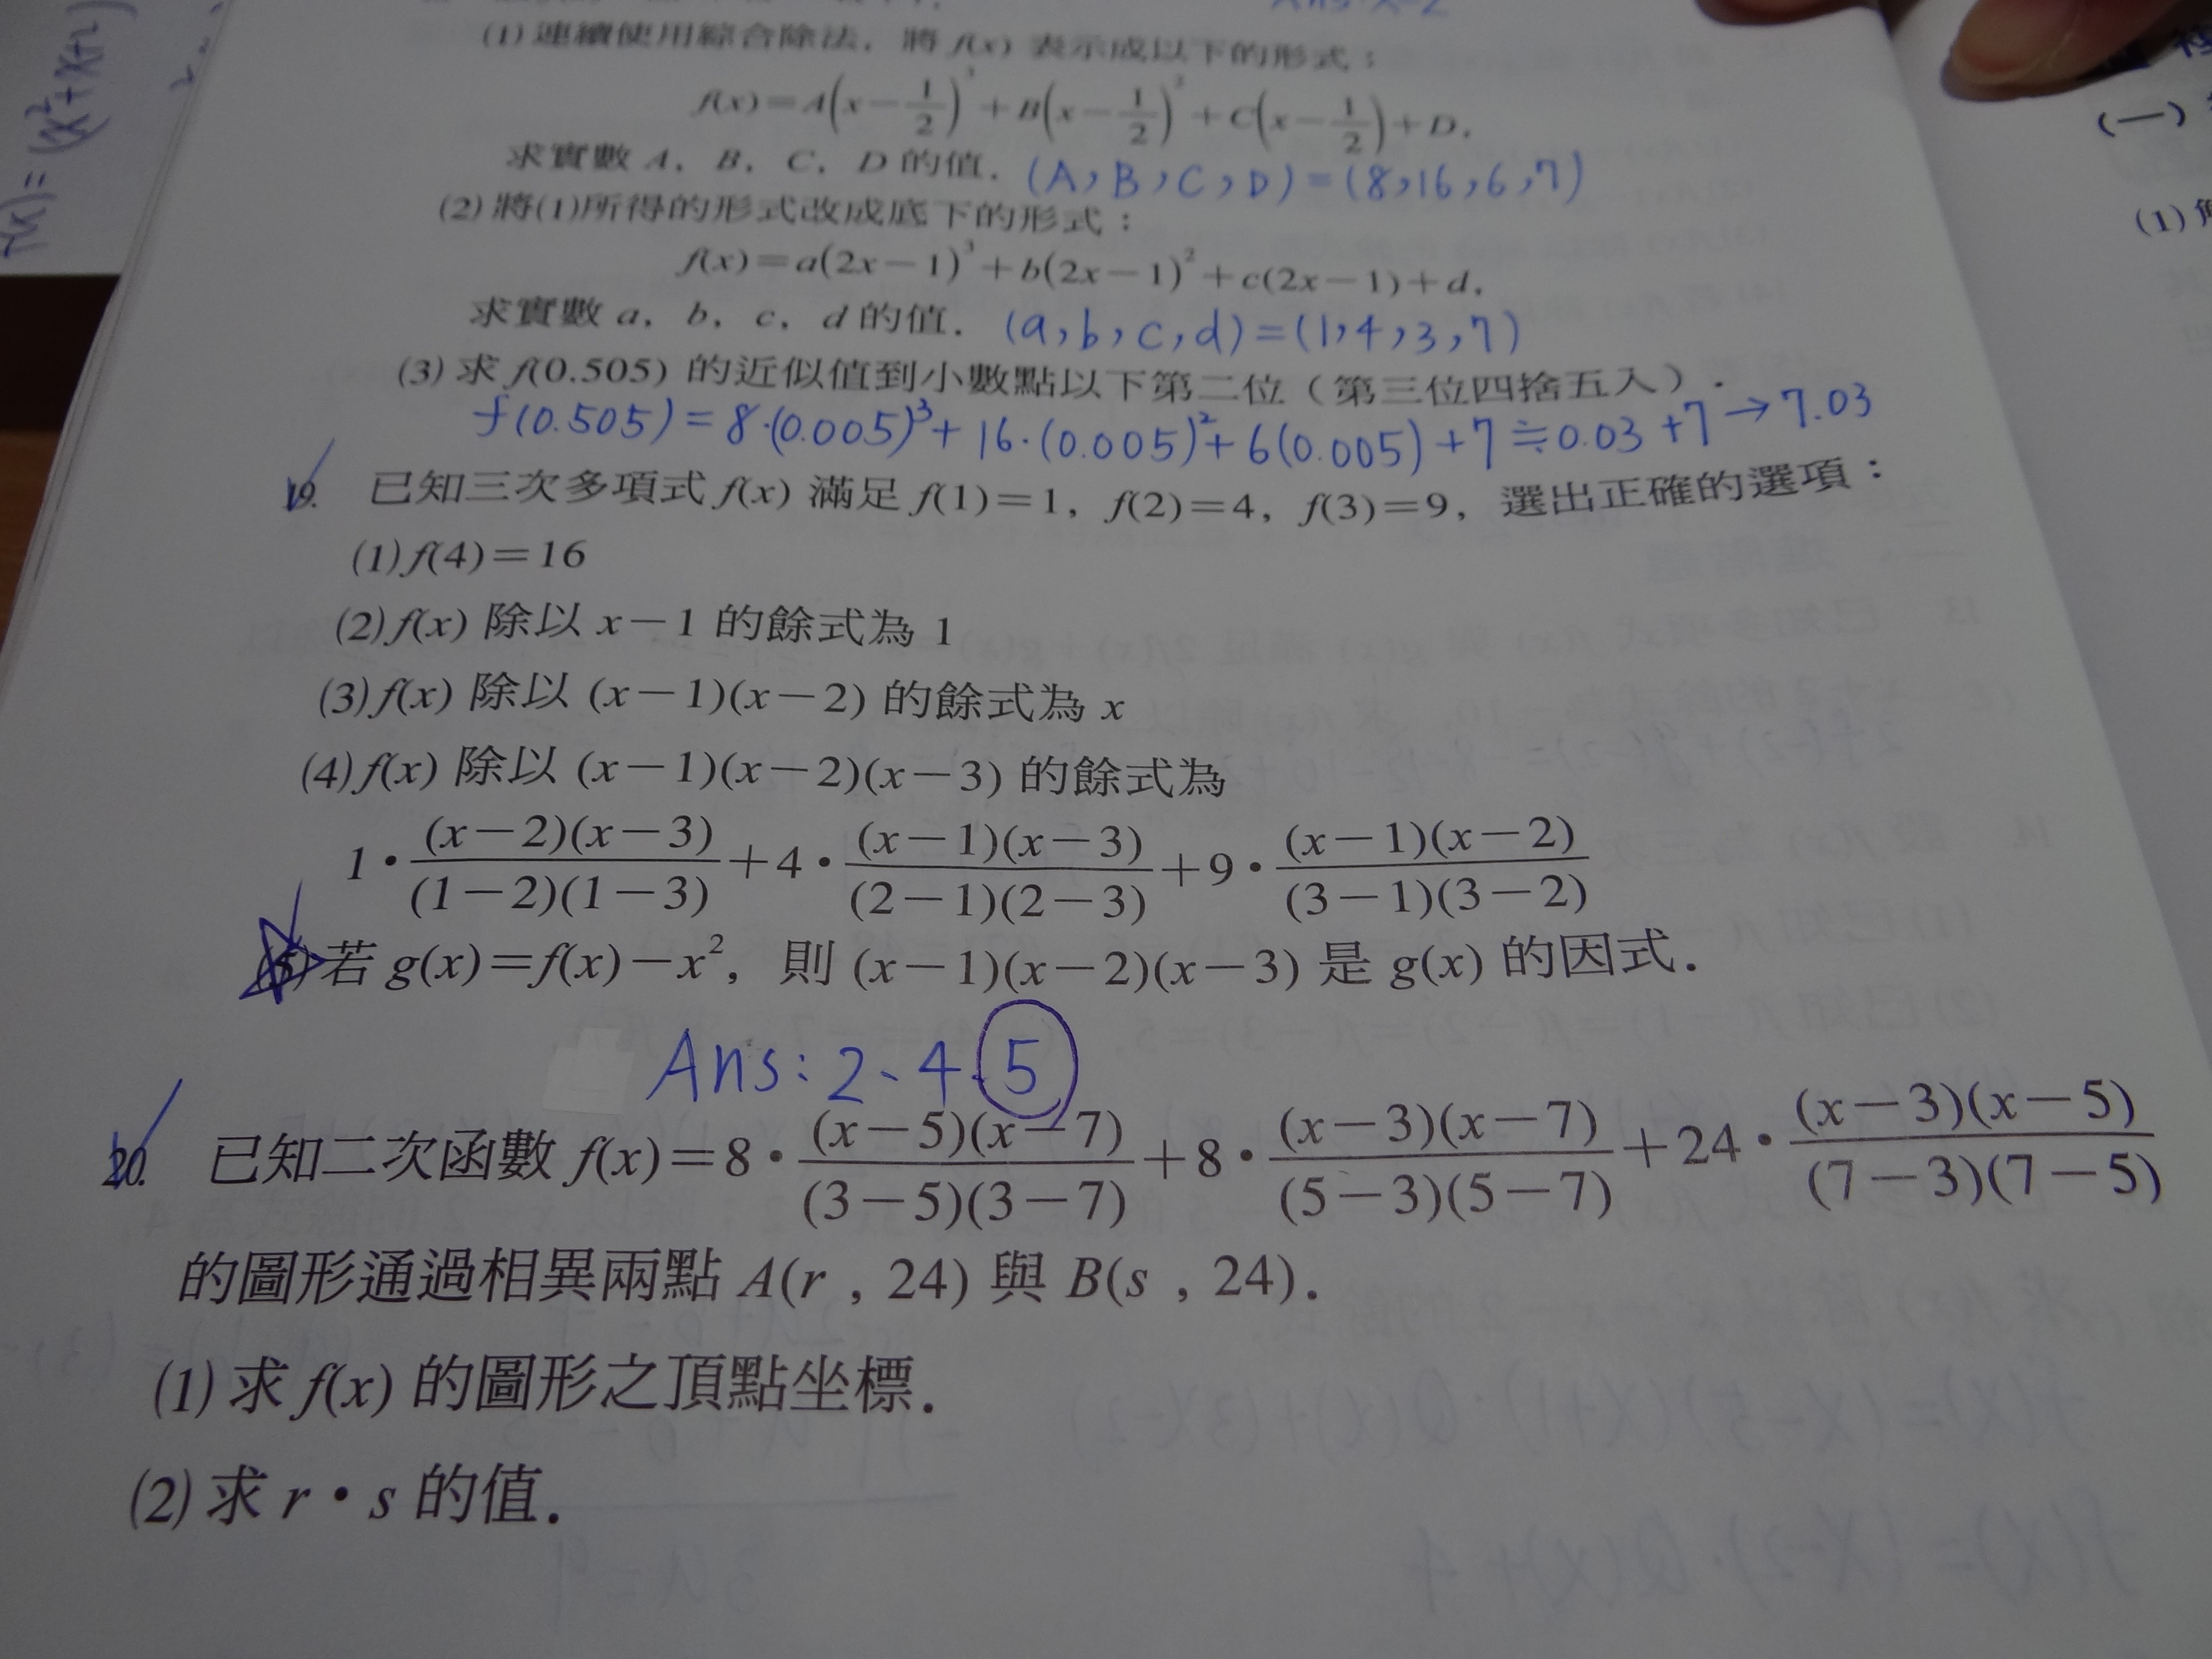 (1) 連續使用綜合除法，將 f(x) 表示成以下的形式：
f(x)＝A(x－1/2)³＋B(x－1/2)²＋C(x－1/2)＋D．
求實數 A，B，C，D 的值． (A，B，C，D)＝(8，16，6，7)
(2) 將(1)所得的形式改成底下的形式：
f(x)＝a(2x－1)³＋b(2x－1)²＋c(2x－1)＋d．
求實數 a，b，c，d 的值． (a，b，c，d)＝(1，4，3，7)
(3) 求 f(0.505) 的近似值到小數點以下第二位（第三位四捨五入）．
f(0.505)＝8·(0.005)³＋16·(0.005)²＋6(0.005)＋7≒0.03＋7→7.03
19. 已知三次多項式 f(x) 滿足 f(1)＝1，f(2)＝4，f(3)＝9，選出正確的選項：
(1) f(4)＝16
(2) f(x) 除以 x－1 的餘式為 1
(3) f(x) 除以 (x－1)(x－2) 的餘式為 x
(4) f(x) 除以 (x－1)(x－2)(x－3) 的餘式為
1·(x－2)(x－3)/(1－2)(1－3)＋4·(x－1)(x－3)/(2－1)(2－3)＋9·(x－1)(x－2)/(3－1)(3－2)
(5) 若 g(x)＝f(x)－x²，則 (x－1)(x－2)(x－3) 是 g(x) 的因式．
Ans：2、4、5
20. 已知二次函數 f(x)＝8·(x－5)(x－7)/(3－5)(3－7)＋8·(x－3)(x－7)/(5－3)(5－7)＋24·(x－3)(x－5)/(7－3)(7－5)
的圖形通過相異兩點 A(r，24) 與 B(s，24)．
(1) 求 f(x) 的圖形之頂點坐標．
(2) 求 r·s 的值．
(一)
(1)